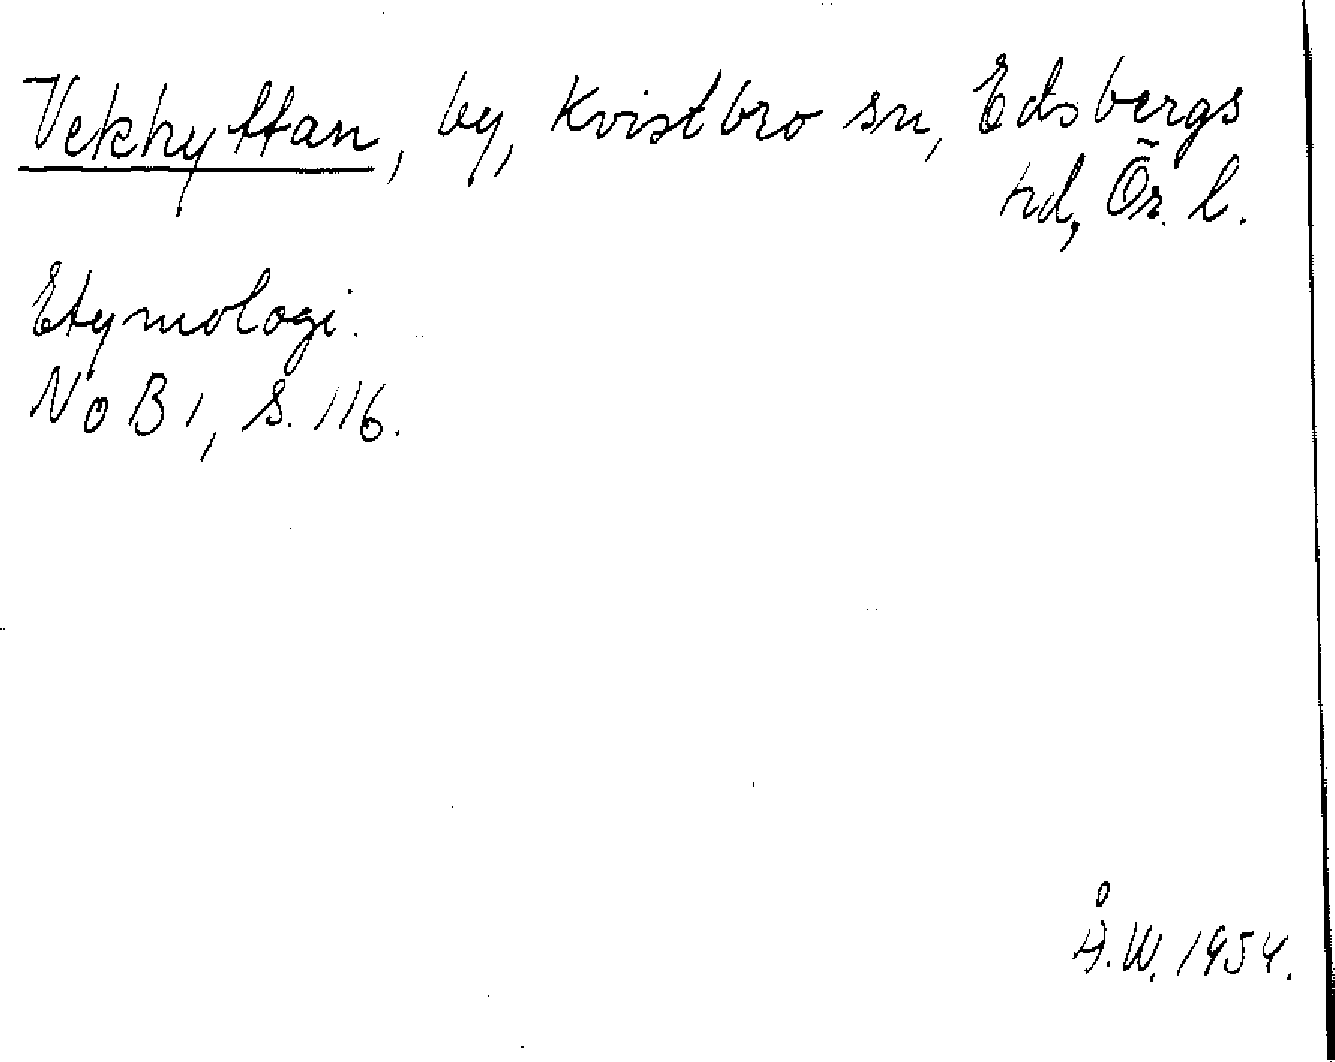 Vekhyttan, by, Kvistbro sn, Edsbergs
hd, Ör. l.
Etymologi.
NoB 1, s. 116.
Å.W. 1954.